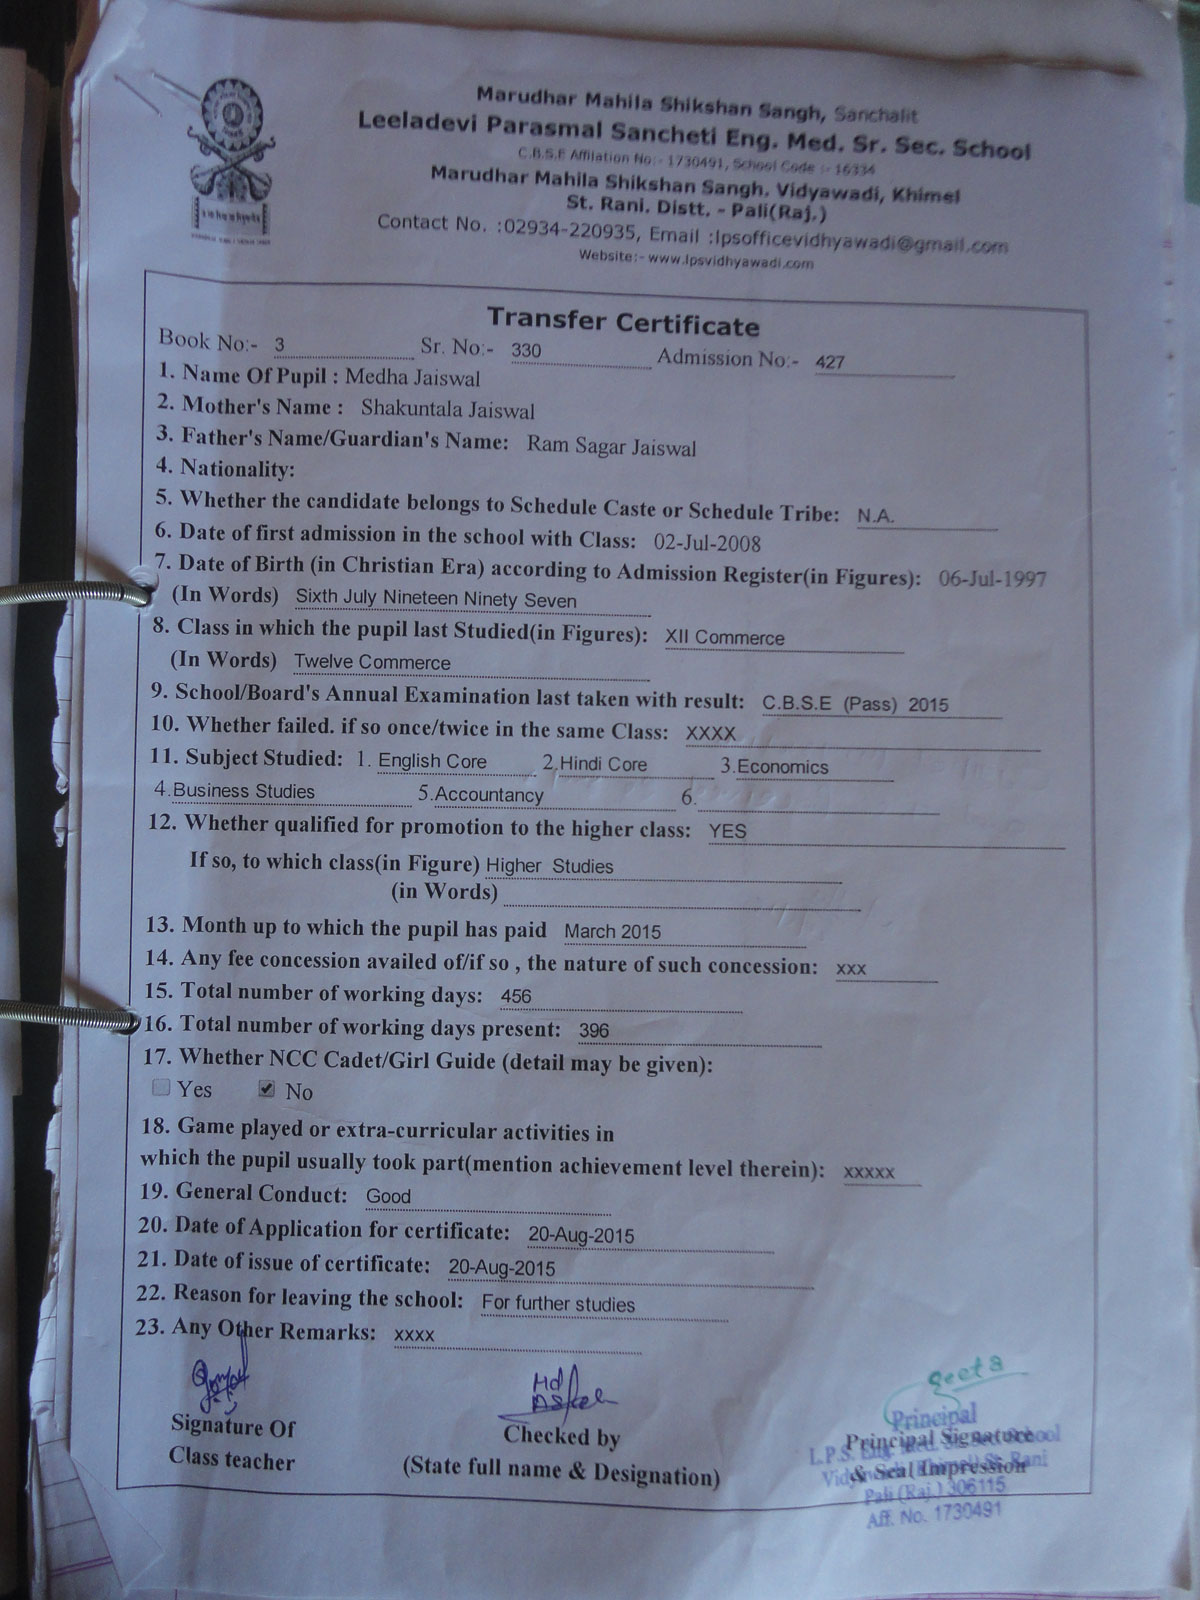 Marudhar Mahila Shikshan Sangh, Sanchalit
Leeladevi Parasmal Sancheti Eng. Med. Sr. Sec. School
C.B.S.E Affilation No:- 1730491, School Code :- 16334
Marudhar Mahila Shikshan Sangh, Vidyawadi, Khimel
St. Rani. Distt. - Pali(Raj.)
Contact No. :02934-220935, Email :lpsofficevidhyawadi@gmail.com
Website:- www.lpsvidhyawadi.com
Transfer Certificate
Book No:- 3 Sr. No:- 330 Admission No:- 427
1. Name Of Pupil : Medha Jaiswal
2. Mother's Name : Shakuntala Jaiswal
3. Father's Name/Guardian's Name: Ram Sagar Jaiswal
4. Nationality:
5. Whether the candidate belongs to Schedule Caste or Schedule Tribe: N.A.
6. Date of first admission in the school with Class: 02-Jul-2008
7. Date of Birth (in Christian Era) according to Admission Register(in Figures): 06-Jul-1997
(In Words) Sixth July Nineteen Ninety Seven
8. Class in which the pupil last Studied(in Figures): XII Commerce
(In Words) Twelve Commerce
9. School/Board's Annual Examination last taken with result: C.B.S.E (Pass) 2015
10. Whether failed. if so once/twice in the same Class: XXXX
11. Subject Studied: 1. English Core 2.Hindi Core 3.Economics
4.Business Studies 5.Accountancy 6.
12. Whether qualified for promotion to the higher class: YES
If so, to which class(in Figure) Higher Studies
(in Words)
13. Month up to which the pupil has paid March 2015
14. Any fee concession availed of/if so , the nature of such concession: xxx
15. Total number of working days: 456
16. Total number of working days present: 396
17. Whether NCC Cadet/Girl Guide (detail may be given):
Yes No
18. Game played or extra-curricular activities in
which the pupil usually took part(mention achievement level therein): xxxxx
19. General Conduct: Good
20. Date of Application for certificate: 20-Aug-2015
21. Date of issue of certificate: 20-Aug-2015
22. Reason for leaving the school: For further studies
23. Any Other Remarks: xxxx
Geeta
Signature Of Class teacher
Checked by
(State full name & Designation)
Principal
Principal Signature
& Seal Impression
L.P.S. Eng. Med. Sr. Sec. School
St. Rani
Pali (Raj.) 306115
Aff. No. 1730491